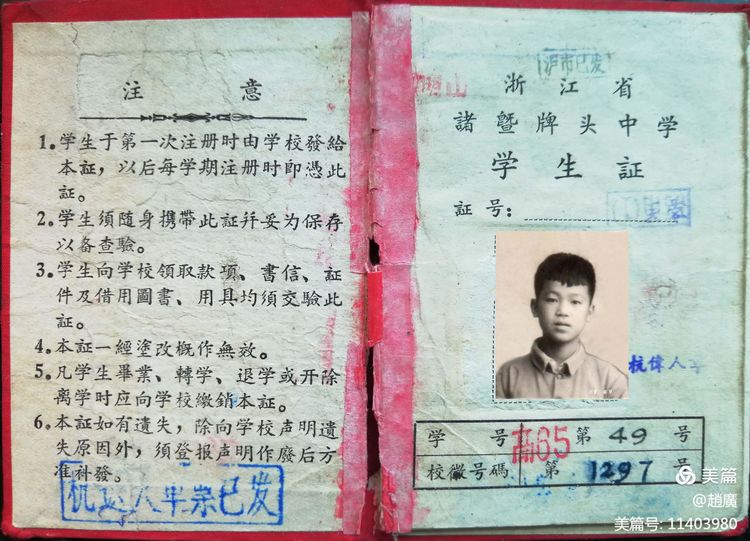 注 意
1。学生于第一次注册时由学校發給
本証，以后每学期注册时即憑此
証。
2。学生須随身携帶此証幷妥为保存
以备查驗。
3。学生向学校領取款項、書信、証
件及借用圖書、用具均須交驗此
証。
4。本証一經塗改概作無效。
5。凡学生畢業、轉学、退学或开除
离学时应向学校繳銷本証。
6。本証如有遺失，除向学校声明遺
失原因外，須登报声明作廢后方
准补發。
布票已发
布已发
浙江省
諸暨牌头中学
学生証
証号：
杭偉人
学 号 高65 第 49 号
校徽号碼 第 1297 号
美篇
@趙廣
美篇号: 11403980